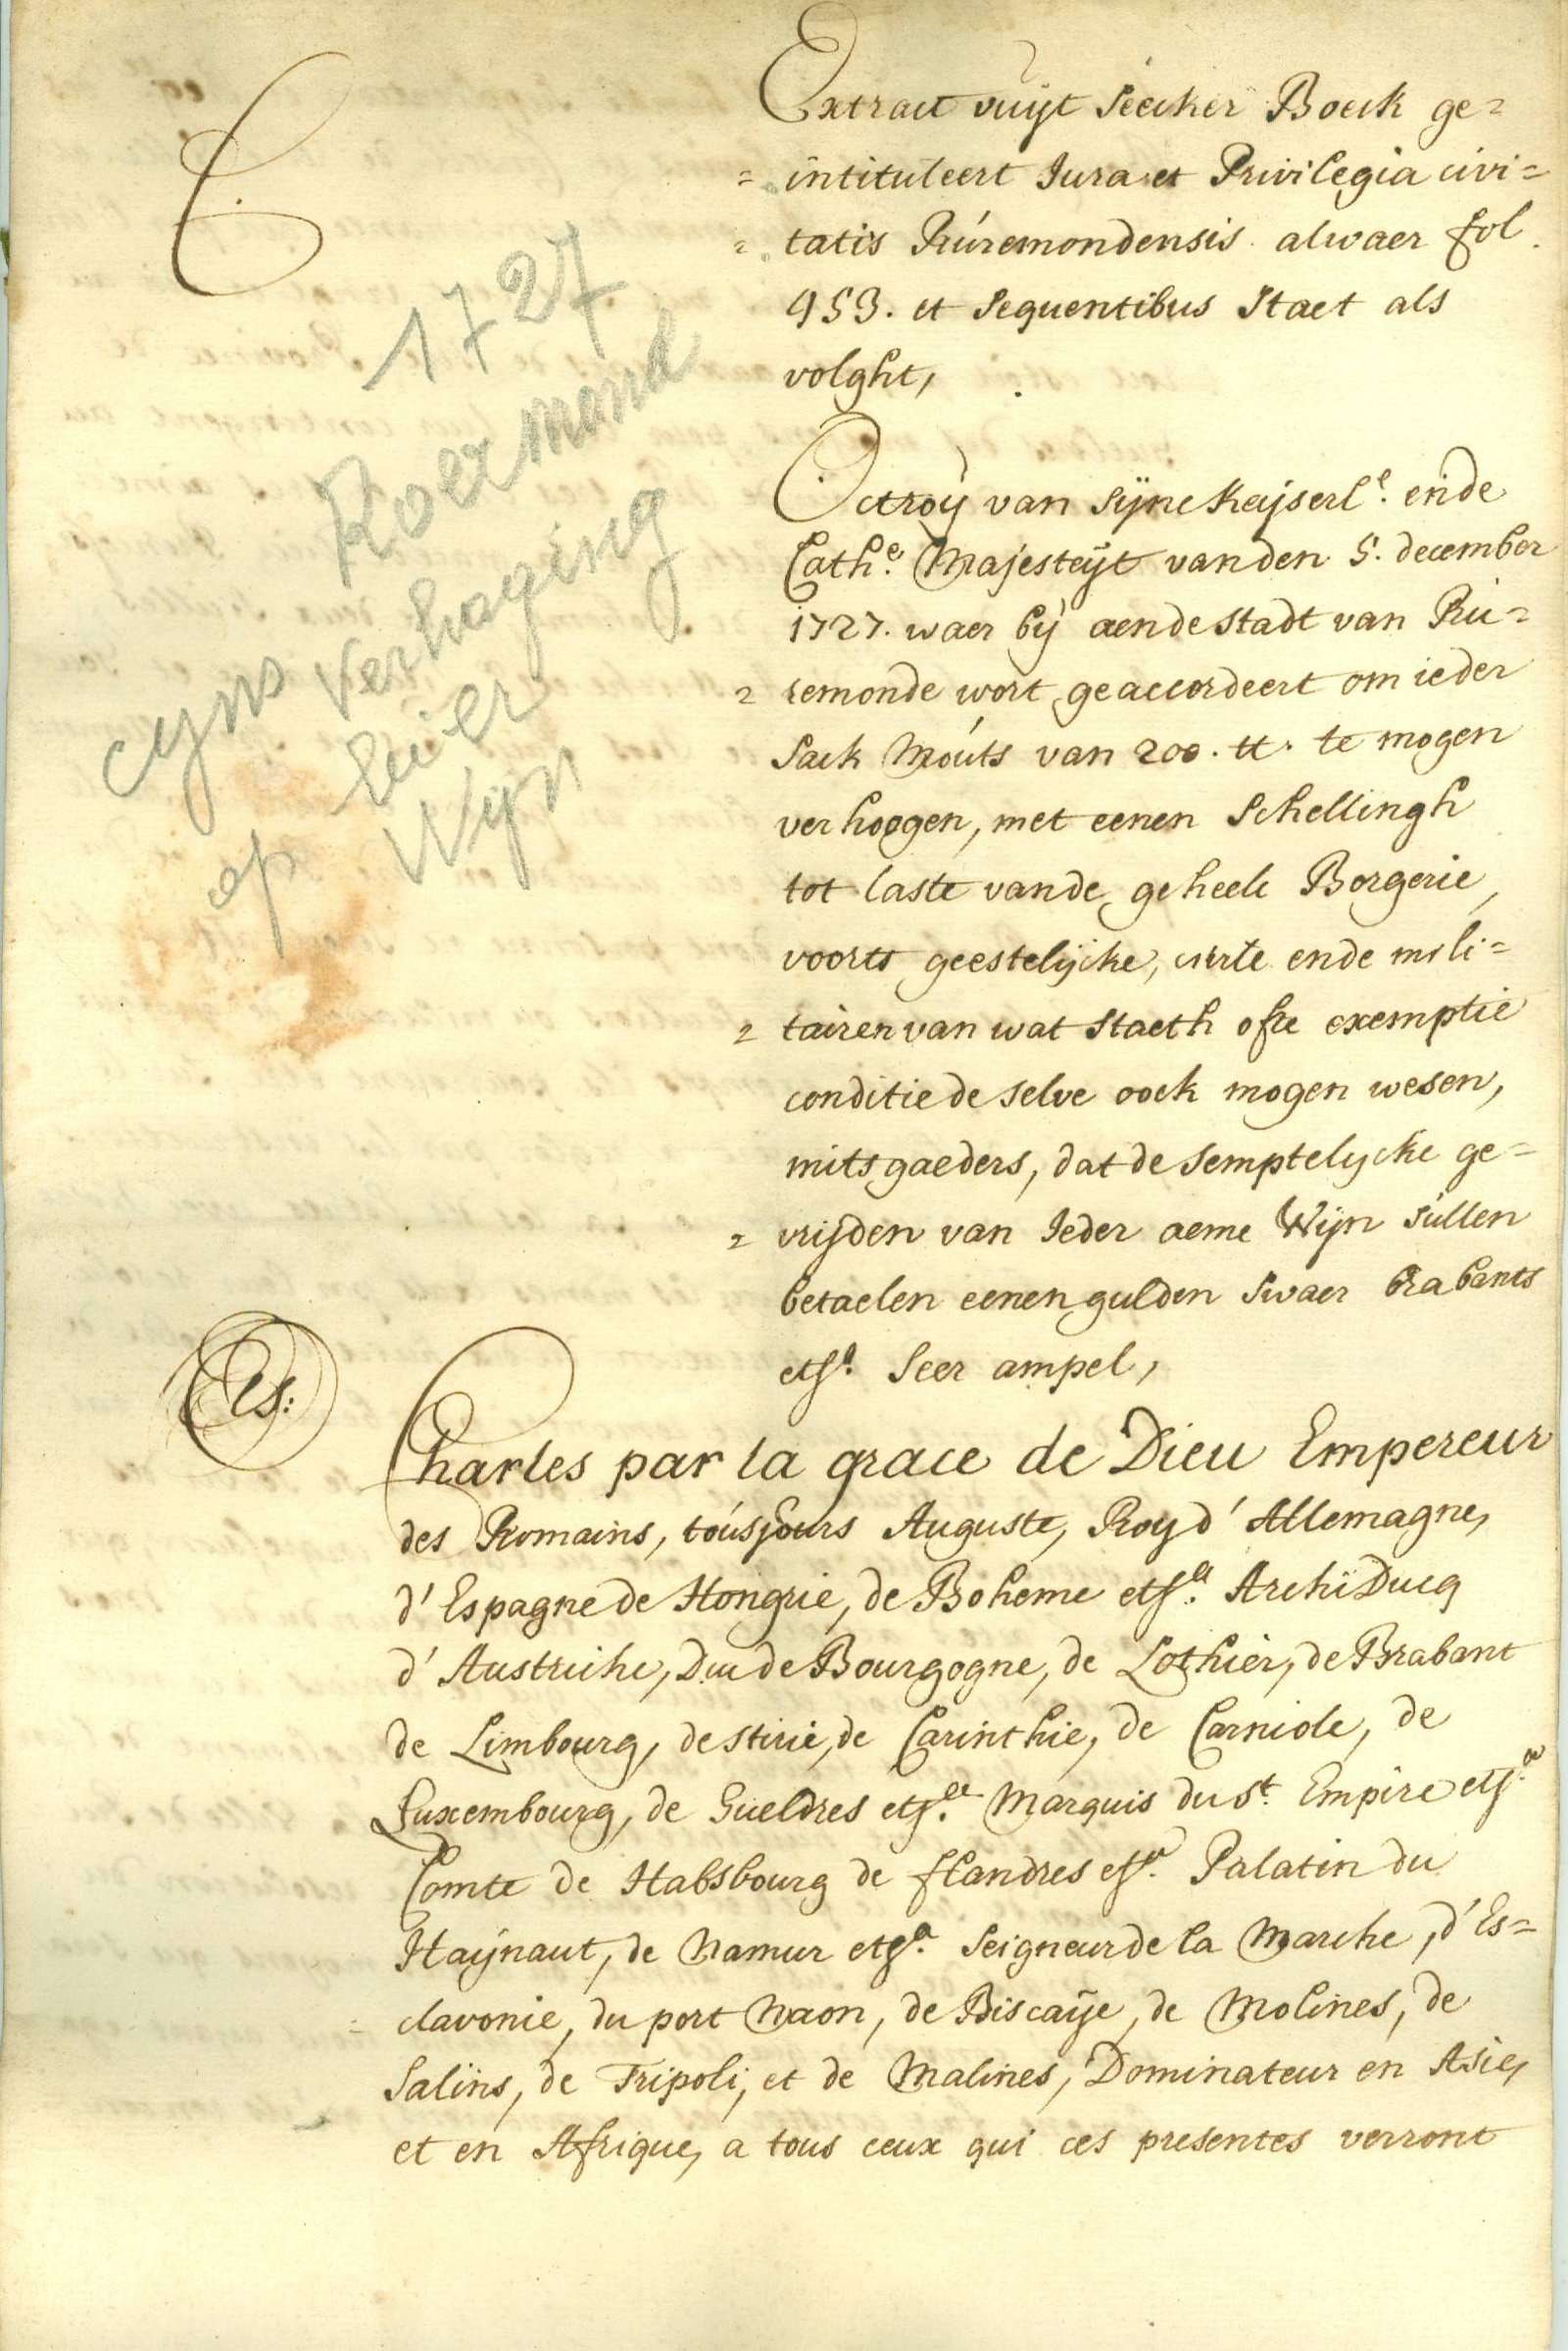 C
Extract vuijt seecker Boeck ge=
= intituleert Jura et Privilegia civi=
= tatis Ruremondensis alwaer fol.
953. et sequentibus staet als
volght,
1727
Roermond
cyns verhoging
op bier
Wijn
Octroÿ van sijne Keijserl.e ende
Cath.e Majesteÿt vanden 5. december
1727. waer bÿ aende stadt van Ru=
= remonde wort geaccordeert om ieder
sack mouts van 200. tt. te mogen
verhoogen, met eenen schellingh
tot laste vande geheele Borgerie,
voorts geestelijcke, ende mili=
= tairen van wat staeth ofte exemptie
conditie de selve oock mogen wesen,
mitsgaeders, dat de semptelijcke ge=
= vrijden van Ieder aeme Wijn sullen
betaelen eenen gulden swaer brabants
etsa. seer ampel,
Es:
Charles par la grace de Dieu Empereur
des Romains, tousjours Auguste, Roy d'Allemagne,
d'Espagne de Hongrie, de Boheme etsa. Archi Ducq
d'Austriche, Duc de Bourgogne, de Lothier, de Brabant
de Limbourg, de stirie, de Carinthie, de Carniole, de
Luxembourg, de Gueldres etsa. Marquis du St. Empire etsa.
Comte de Habsbourg de flandres etsa. Palatin du
Haÿnaut, de Namur etsa. Seigneur de la Marche, d'Es=
= clavonie, du port Naon, de Biscaÿe, de Molines, de
Salins, de Tripoli, et de Malines, Dominateur en Asie,
et en Afrique, a tous ceux qui ces presentes verront